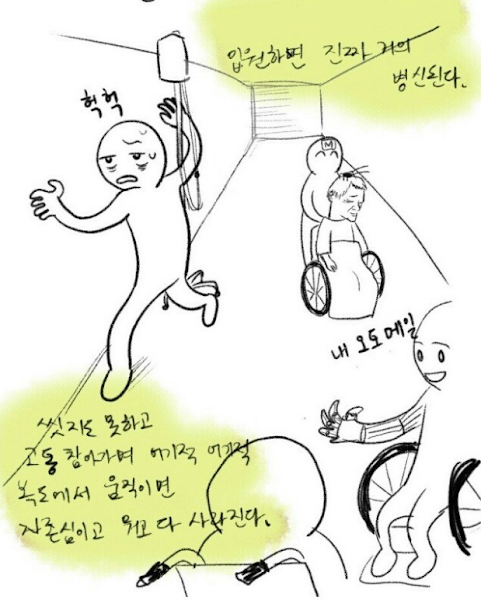 입원하면 진짜 거의
병신된다.
헉헉
M
내 오토메일
씻지도 못하고
고통 참아가며 어기적 어기적
복도에서 움직이면
자존심이고 뭐고 다 사라진다.